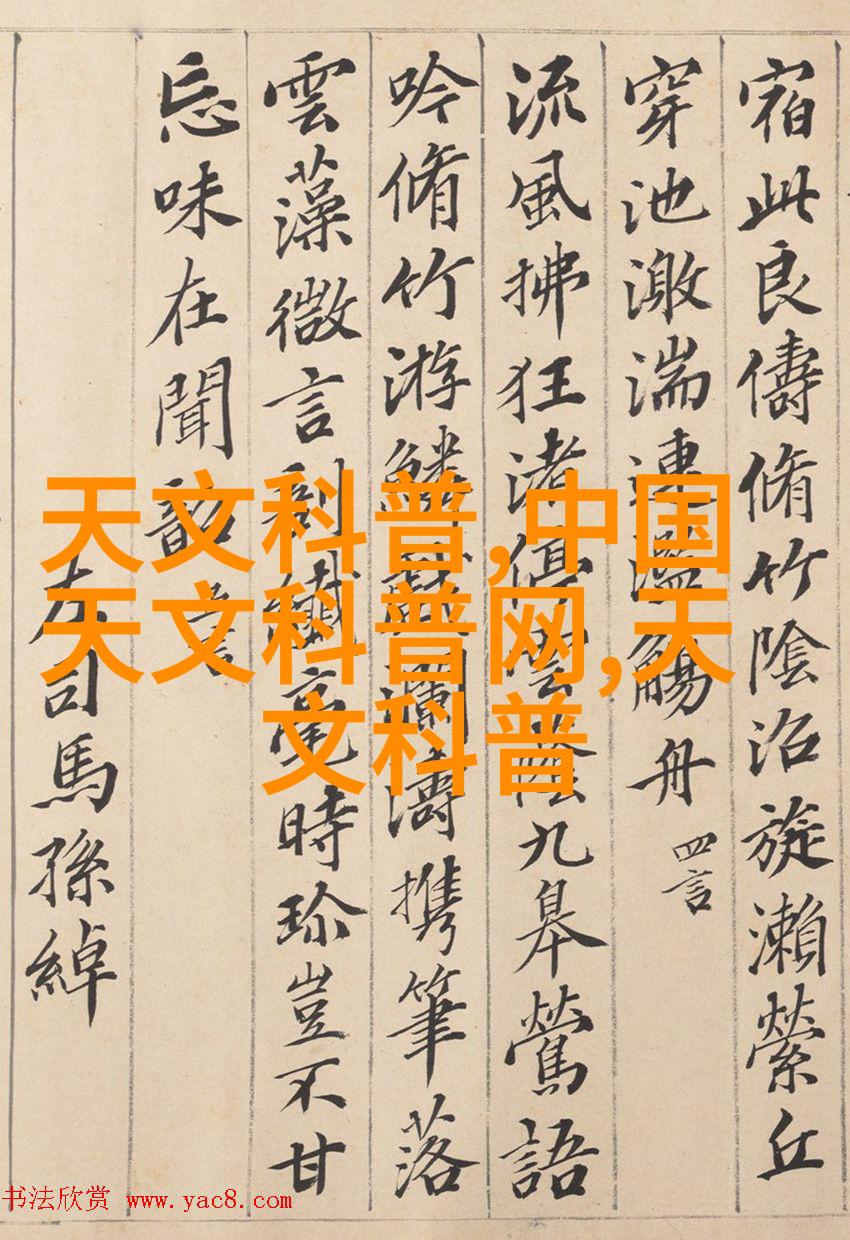 宿此良儔脩竹陰沼旋瀨縈丘
穿池激湍連濫觴舟 四言
流風拂狂渚停雲蔭九皋鶯語
吟脩竹游鱗戲瀾濤携筆落
雲藻微言剖纖毫時珎豈不甘
忘味在聞韶 言
左司馬孫綽
天文科普,中国
天文科普网,天
文科普
书法欣赏 www.yac8.com